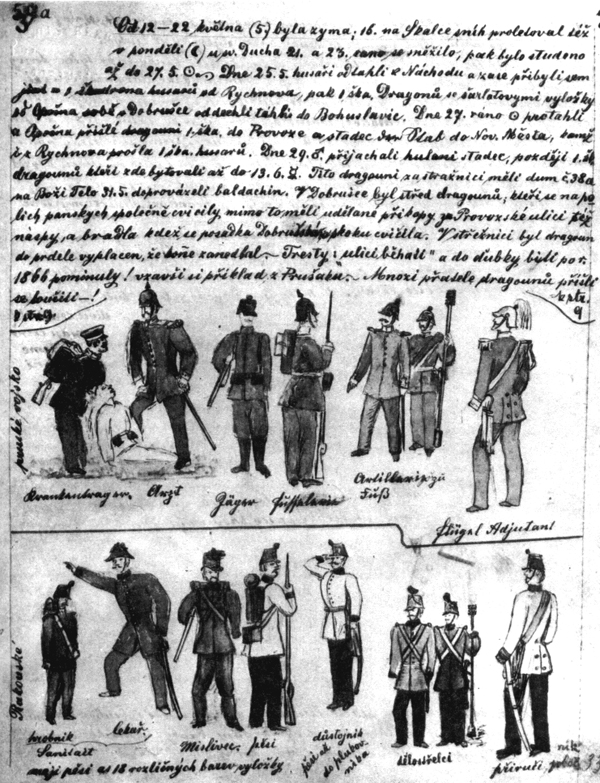 Od 12–22 května (5) byla zyma; 16. na Skalce sníh proletoval též
v pondělí ( ) u sv. Ducha 21. a 23. rano se sněžilo, pak bylo studeno
až do 27. 5. Dne 25. 5. husaři odtáhli k Náchodu a zase přibyli sem
jeden a 1 škadrona husarů od Rychnova, pak 1 ška. Dragonů se šarlatovymi vyložky
od Opočna sobě v Dobrušce oddechli táhli do Bohuslavic. Dne 27. ráno protáhli
z Opočna přišlé dragouni 1. ška. do Provoze a stadec do Nov. Města, tamž
i z Rychnova prošla 1 ška. husarů. Dne 29. 5. přijachali hulani stadec, později 1. šk
dragounů kteří zde bytovali až do 13. 6. Tito dragouni za stražnici měli dum č. 38a
na Boží Tělo 31. 5. doprovázeli baldachin. V Dobrušce byl střed dragounů, kteří se na po-
lich panských společně cvičily, mimo to měli udělané příkopy za Provozské ulici též
náspy, a bradla kdež se posádka Dobrušská skoku cvičila. V střežnici byl dragoun
do prdele vyplacen, že koně zanedbal. – Tresty „ulicí běhati" a do dubky bíti po r.
1866 pominuly! vzavši si příklad z Prušáků. – Mnozí přátelé dragounů přišli
se loučiti –!
9
pruské vojsko
Krankentrager. Arzt
Jäger Füsselerie
Artillerie zu
Fuß
Flügel Adjutant
Rakouské
hrobník
Sanitäit
lekař.
Mislivec. pěší
důstojník
pěší až
do plukov-
níka
dělostřelci
příručí
ník
mají pěší as 18 rozličných barev vyložky